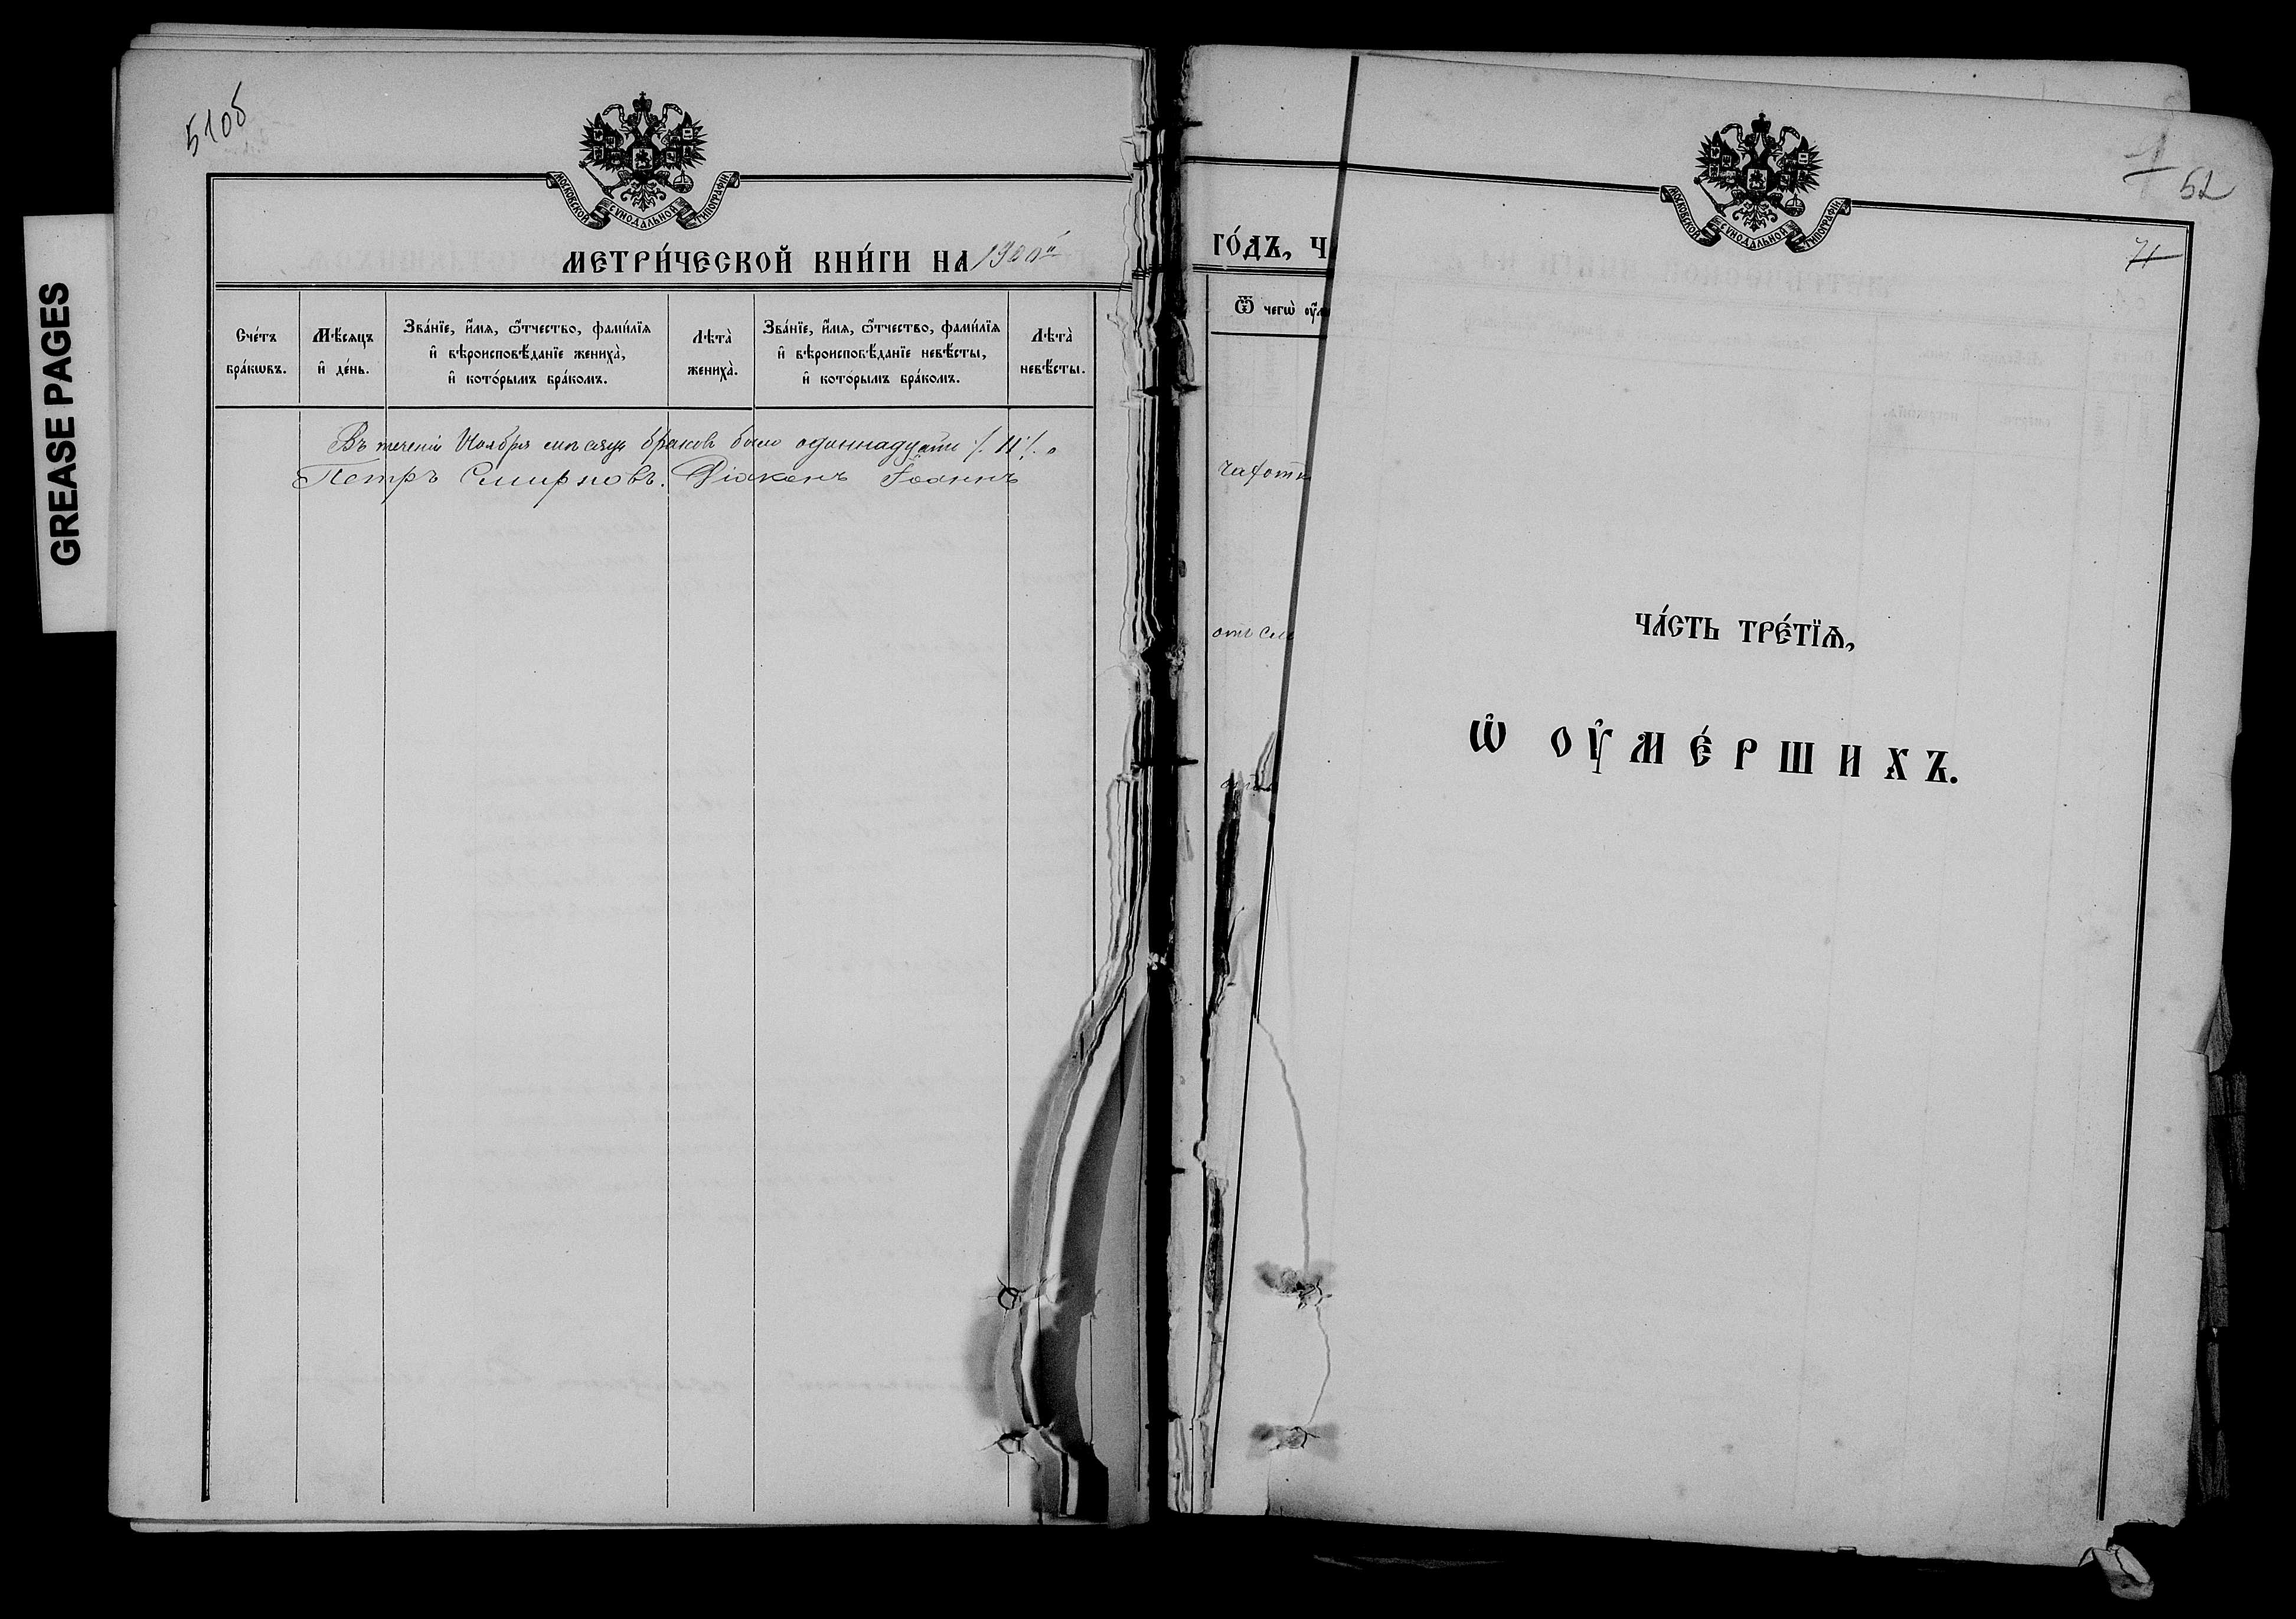 GREASE PAGES
51об
МОСКОВСКОЙ СѴНОДАЛЬНОЙ ТИПОГРАФІИ.
МЕТРИ́ЧЕСКОЙ КНИ́ГИ НА 1900й
Сче́тъ бра́кѡвъ.
Мѣ́сяцъ и҆ де́нь.
Зва́нїе, и҆́мя, ѻ҆́тчество, фами́лїя и҆ вѣроисповѣ́данїе жениха̀, и҆ кото́рымъ бра́комъ.
Лѣта̀ жениха̀.
Зва́нїе, и҆́мя, ѻ҆́тчество, фами́лїя и҆ вѣроисповѣ́данїе невѣ́сты, и҆ кото́рымъ бра́комъ.
Лѣта̀ невѣ́сты.
Въ течени Ноября месяца браковъ было одиннадцать /.11./.
Петръ Смирновъ. Діаконъ Іоаннъ
ГО́ДЪ, Ч
Ѿ чегѡ̀ ᲂу҆м
чахотк
отъ сла
МОСКОВСКОЙ СѴНОДАЛЬНОЙ ТИПОГРАФІИ.
1
52
71
ЧА́СТЬ ТРЕ́ТЇѦ,
Ѡ҆ ОУ҆МЕ́РШИХЪ.